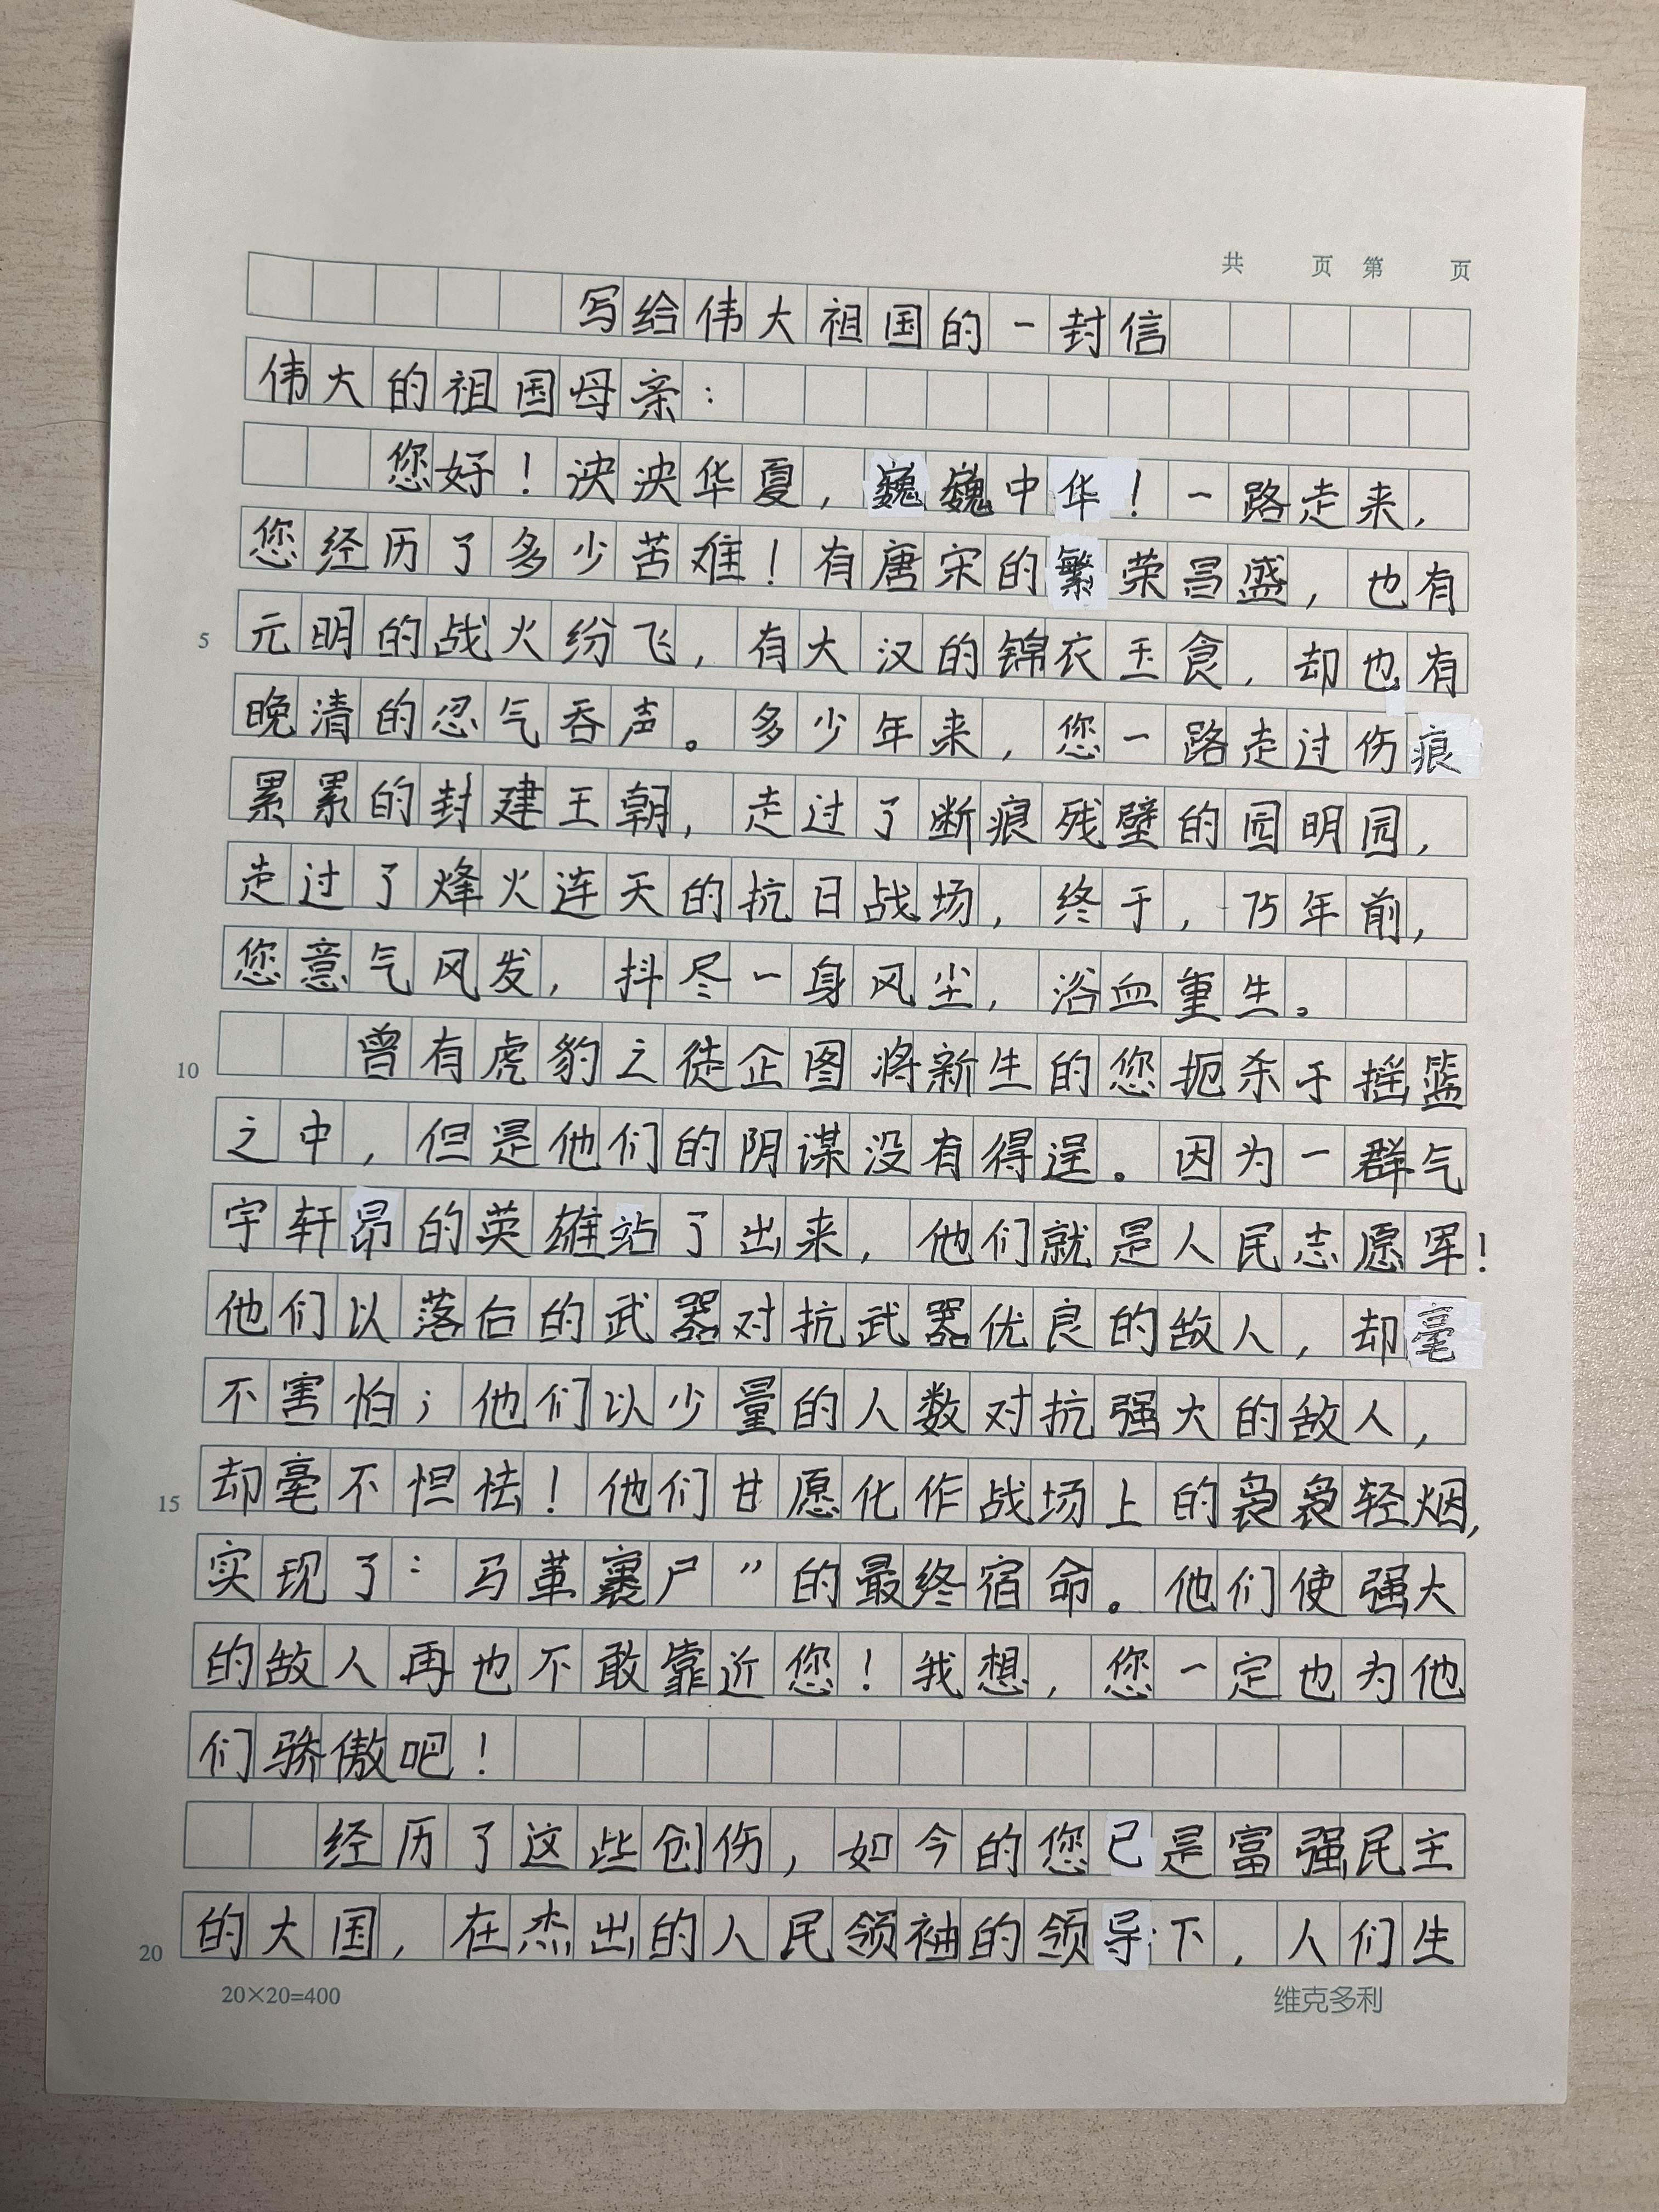 共 页 第 页
写给伟大祖国的一封信
伟大的祖国母亲：
您好！泱泱华夏，巍巍中华！一路走来，
您经历了多少苦难！有唐宋的繁荣昌盛，也有
5 元明的战火纷飞，有大汉的锦衣玉食，却也有
晚清的忍气吞声。多少年来，您一路走过伤痕
累累的封建王朝，走过了断痕残壁的园明园，
走过了烽火连天的抗日战场，终于，75年前，
您意气风发，抖尽一身风尘，浴血重生。
10 曾有虎豹之徒企图将新生的您扼杀于摇篮
之中，但是他们的阴谋没有得逞。因为一群气
宇轩昂的英雄站了出来，他们就是人民志愿军！
他们以落后的武器对抗武器优良的敌人，却毫
不害怕；他们以少量的人数对抗强大的敌人，
15 却毫不怛怯！他们甘愿化作战场上的袅袅轻烟，
实现了“马革裹尸”的最终宿命。他们使强大
的敌人再也不敢靠近您！我想，您一定也为他
们骄傲吧！
经历了这些创伤，如今的您已是富强民主
20 的大国，在杰出的人民领袖的领导下，人们生
20×20=400 维克多利